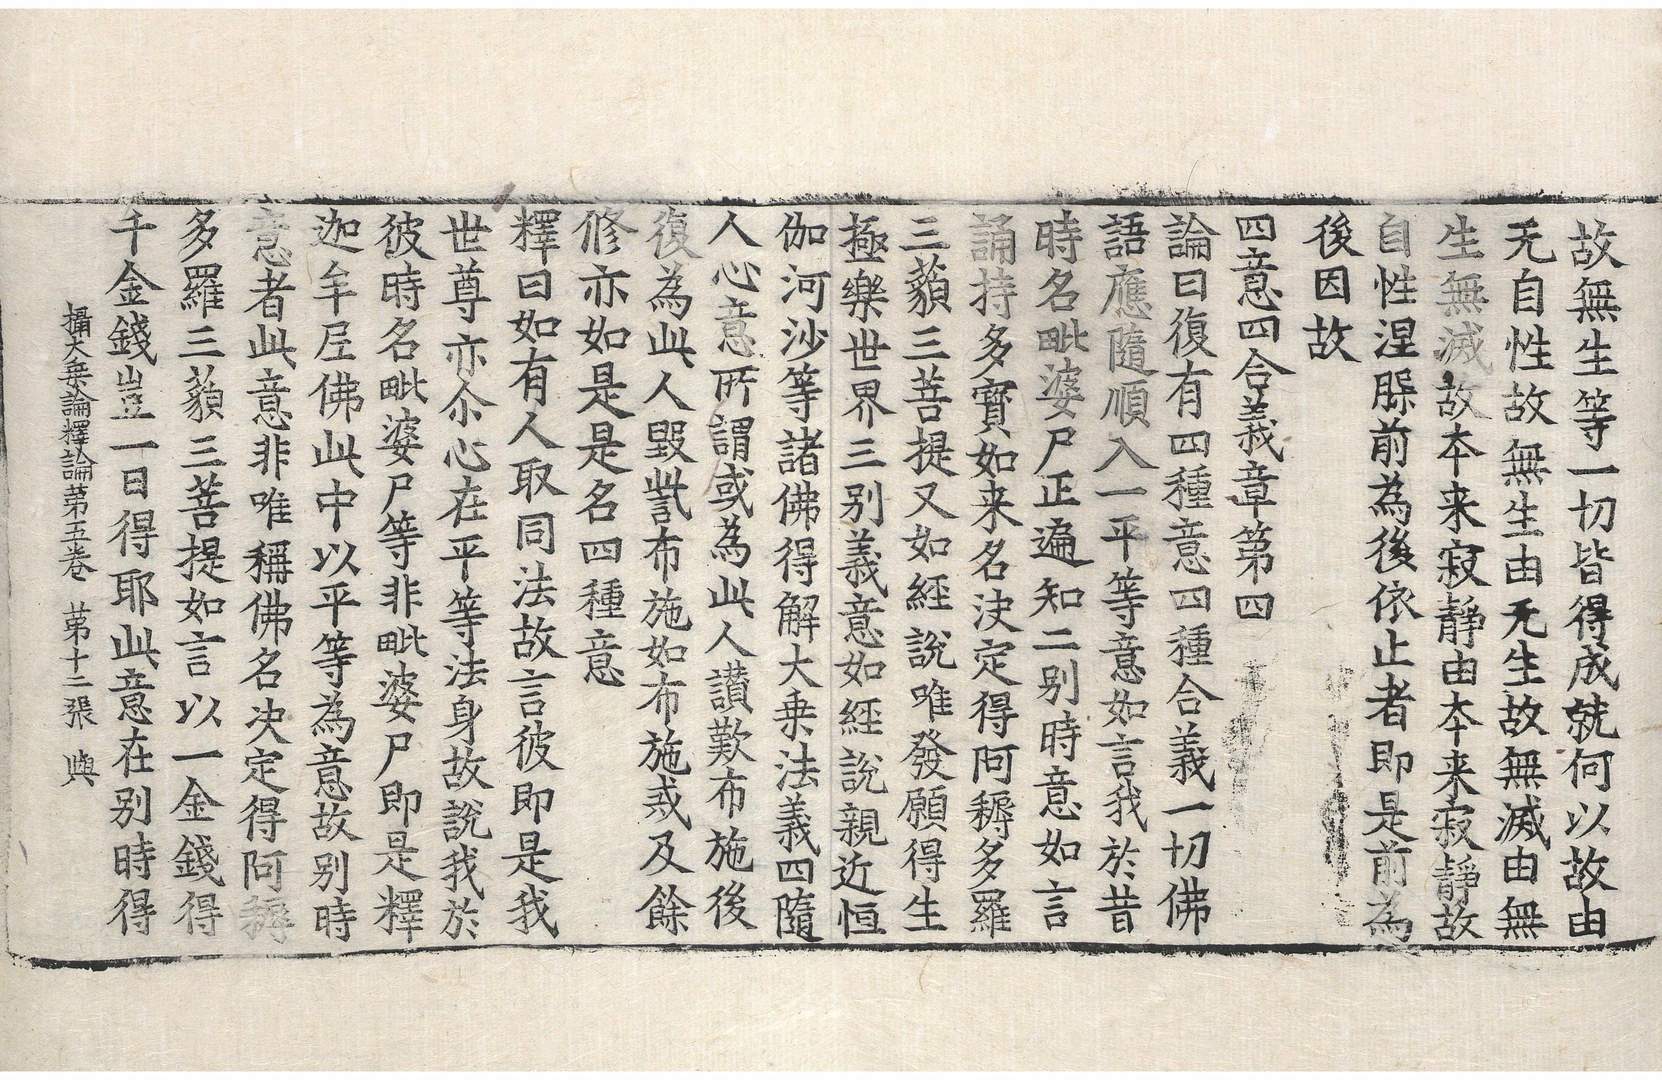 故無生等一切皆得成就何以故由
无自性故無生由无生故無滅由無
生無滅故本来寂靜由本来寂靜故
自性涅槃前為後依止者即是前為
後因故
四意四合義章第四
論曰復有四種意四種合義一切佛
語應隨順入一平等意如言我於昔
時名毗婆尸正遍知二别時意如言
誦持多寶如来名决定得阿耨多羅
三藐三菩提又如經說唯發願得生
極樂世界三别義意如經說親近恒
伽河沙等諸佛得解大乗法義四隨
人心意所謂或為此人讃歎布施後
復為此人毀訾布施如布施戒及餘
修亦如是是名四種意
釋曰如有人取同法故言彼即是我
世尊亦尒心在平等法身故說我於
彼時名毗婆尸等非毗婆尸即是釋
迦牟𡰱佛此中以平等為意故别時
意者此意非唯稱佛名决定得阿耨
多羅三藐三菩提如言以一金錢得
千金錢豈一日得耶此意在别時得
攝大乗論釋論苐五卷　苐十二張　與